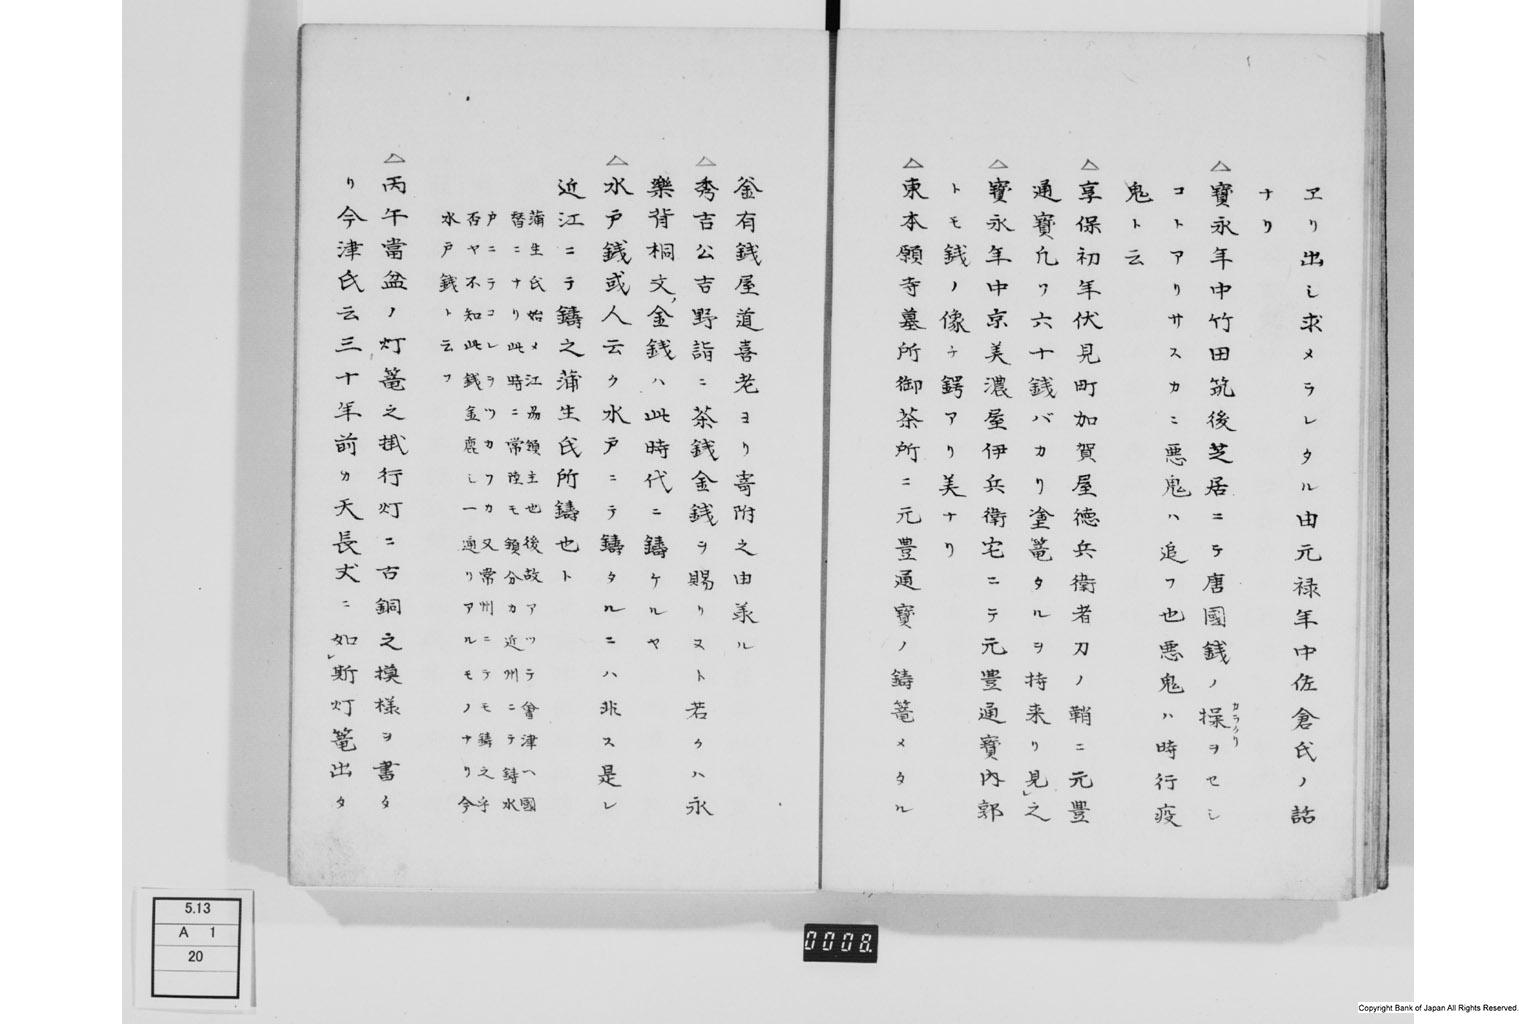 ヱリ出シ求メラレタル由元禄年中佐倉氏ノ話
ナリ
△寶永年中竹田筑後芝居ニテ唐國銭ノ操ヲセシ
カラクリ
コトアリサスカニ悪鬼ハ追フ也悪鬼ハ時行疫
鬼ト云
△享保初年伏見町加賀屋徳兵衛者刀ノ鞘ニ元豊
通寶凢ソ六十銭バカリ塗篭タルヲ持来リ見レ之
△寶永年中京美濃屋伊兵衛宅ニテ元豊通寶内郭
トモ銭ノ像チ鍔アリ美ナリ
△東本願寺墓所御茶所ニ元豊通寶ノ鋳篭メタル
釜有銭屋道喜老ヨリ寄附之由羕ル
△秀吉公吉野詣ニ茶銭金銭ヲ賜リヌト若クハ永
樂背桐文金銭ハ此時代ニ鑄ケルヤ
△水戸銭或人云ク水戸ニテ鑄タルニハ非ス是レ
近江ニテ鑄之蒲生氏所鑄也ト
蒲生氏始メ江州領主也後故アツテ會津ヘ國
替ニナリ此時ニ常陸モ領分カ近州ニテ鋳水
戸ニテコレヲツカワカ又常州ニテモ鋳之乎
否ヤ不知此銭金鹿シ一通リアルモノナリ今
水戸銭ト云フ
△丙午當盆ノ灯篭之掛行灯ニ古銅之摸様ヲ書タ
リ今津氏云三十年前カ天長丈ニ如レ斯灯篭出タ
0008
5.13
A 1
20
Copyright Bank of Japan All Rights Reserved.